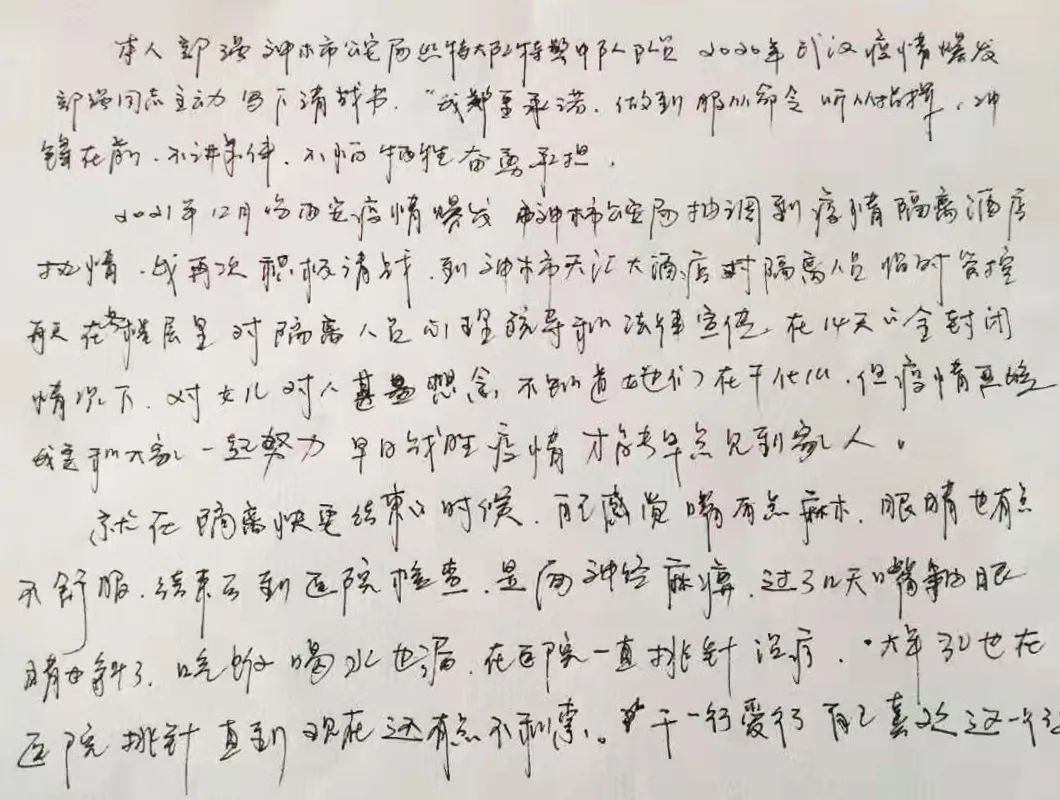 本人郭强神木市公安局巡特大队特警中队队员 2020年武汉疫情爆发
郭强同志主动写下请战书."我郑重承诺.做到服从命令听从指挥.冲
锋在前.不讲条件.不怕牺牲奋勇承担.
2021年12月份西安疫情爆发 神木市公安局抽调到疫情隔离酒店
执情.我再次积极请战.到神木市天汇大酒店对隔离人员临时管控
每天在楼层里对隔离人员心理疏导和法律宣传.在14天的全封闭
情况下.对女儿对人甚是想念.不知道她们在干什么.但疫情再
我和大家一起努力 早日战胜疫情才能早点见到家人。
就在隔离快要结束的时候.自己感觉嘴有点麻木.眼睛也有点
不舒服.结束后到医院检查.是面神经麻痹.过了几天嘴斜的眼
睛也斜了.吃饭喝水也漏.在医院一直挑针治疗.大年30也在
医院挑针直到现在还有点不利索.。干一行爱行 自己喜欢这一行